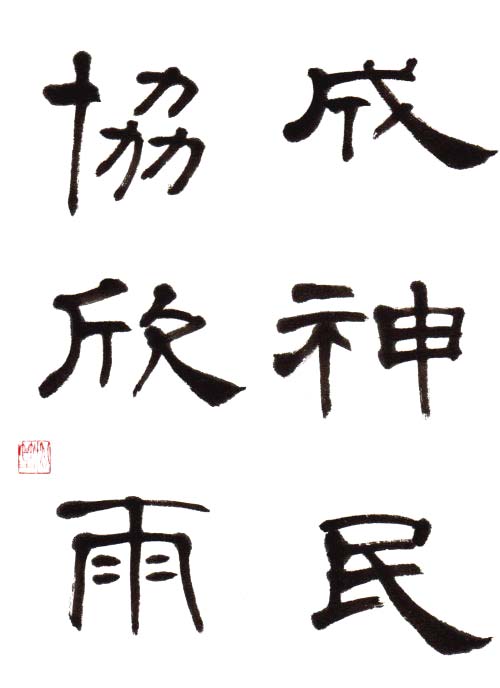 成神民
協欣雨